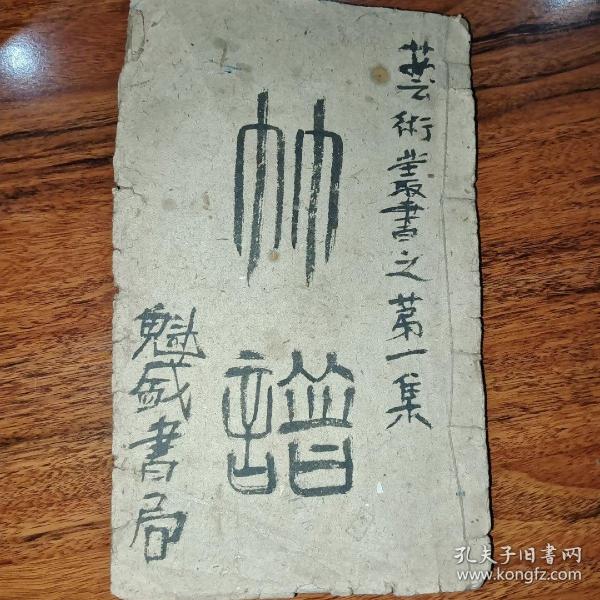 芸術叢書之第一集
竹譜
魁盛書局
孔夫子旧书网
www.kongfz.com